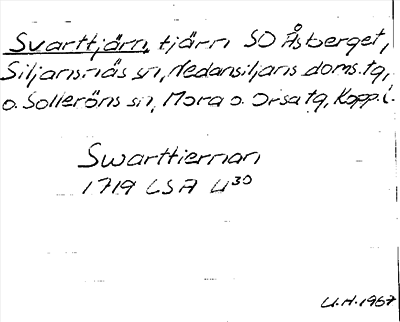 Svarttjärn, tjärn SO Åsberget,
Siljansnäs sn, Nedansiljans doms.tg,
o. Solleröns sn, Mora o. Orsa tg, Kopp. l.
Swarttiernan
1719 LSA U30
U.H. 1967